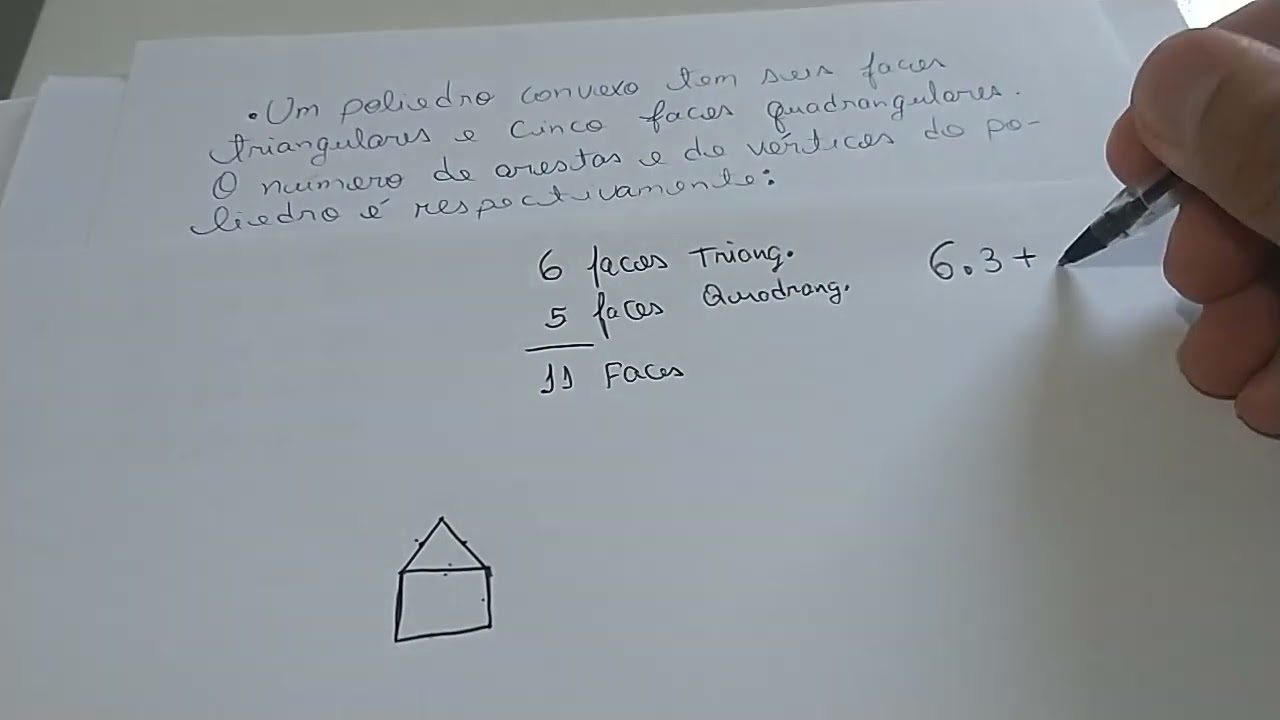 • Um poliedro convexo tem seis faces
triangulares e cinco faces quadrangulares.
O número de arestas e de vértices do po-
liedro é respectivamente:
6 faces Triang.
5 faces Quadrang.
11 Faces
6.3+